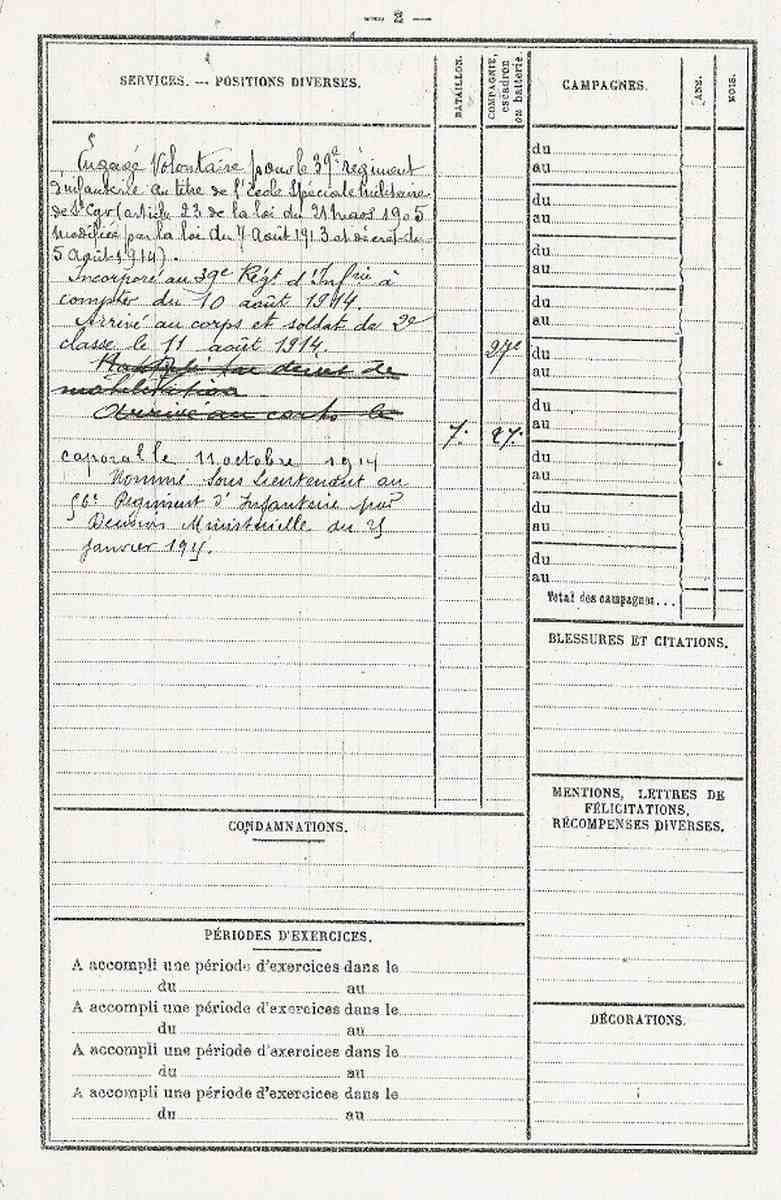 — 2 —
SERVICES. — POSITIONS DIVERSES.
BATAILLON.
COMPAGNIE,
escadron
ou batterie.
CAMPAGNES.
ANS.
MOIS.
Engagé Volontaire pour le 39e régiment
d'infanterie au titre de l'école Spéciale Militaire
de St Cyr (article 23 de la loi du 21 mars 1905
modifiée par la loi du 7 Août 1913 et décret du
5 août 1914).
Incorporé au 39e Régt d'Infrie à
compter du 10 août 1914.
Arrivé au corps et soldat de 2e
classe le 11 août 1914.
27e
décret de
mobilisation
Arrivé au corps le
7. 27.
caporal le 11 octobre 1914
Nommé Sous Lieutenant au
Régiment d'Infanterie par
Décision Ministérielle du 25
janvier 1915.
du
au
du
au
du
au
du
au
du
au
du
au
du
au
du
au
du
au
Total des campagnes...
BLESSURES ET CITATIONS.
MENTIONS, LETTRES DE
FÉLICITATIONS,
RÉCOMPENSES DIVERSES.
DÉCORATIONS.
CONDAMNATIONS.
PÉRIODES D'EXERCICES.
A accompli une période d'exercices dans le
du au
A accompli une période d'exercices dans le
du au
A accompli une période d'exercices dans le
du au
A accompli une période d'exercices dans le
du au